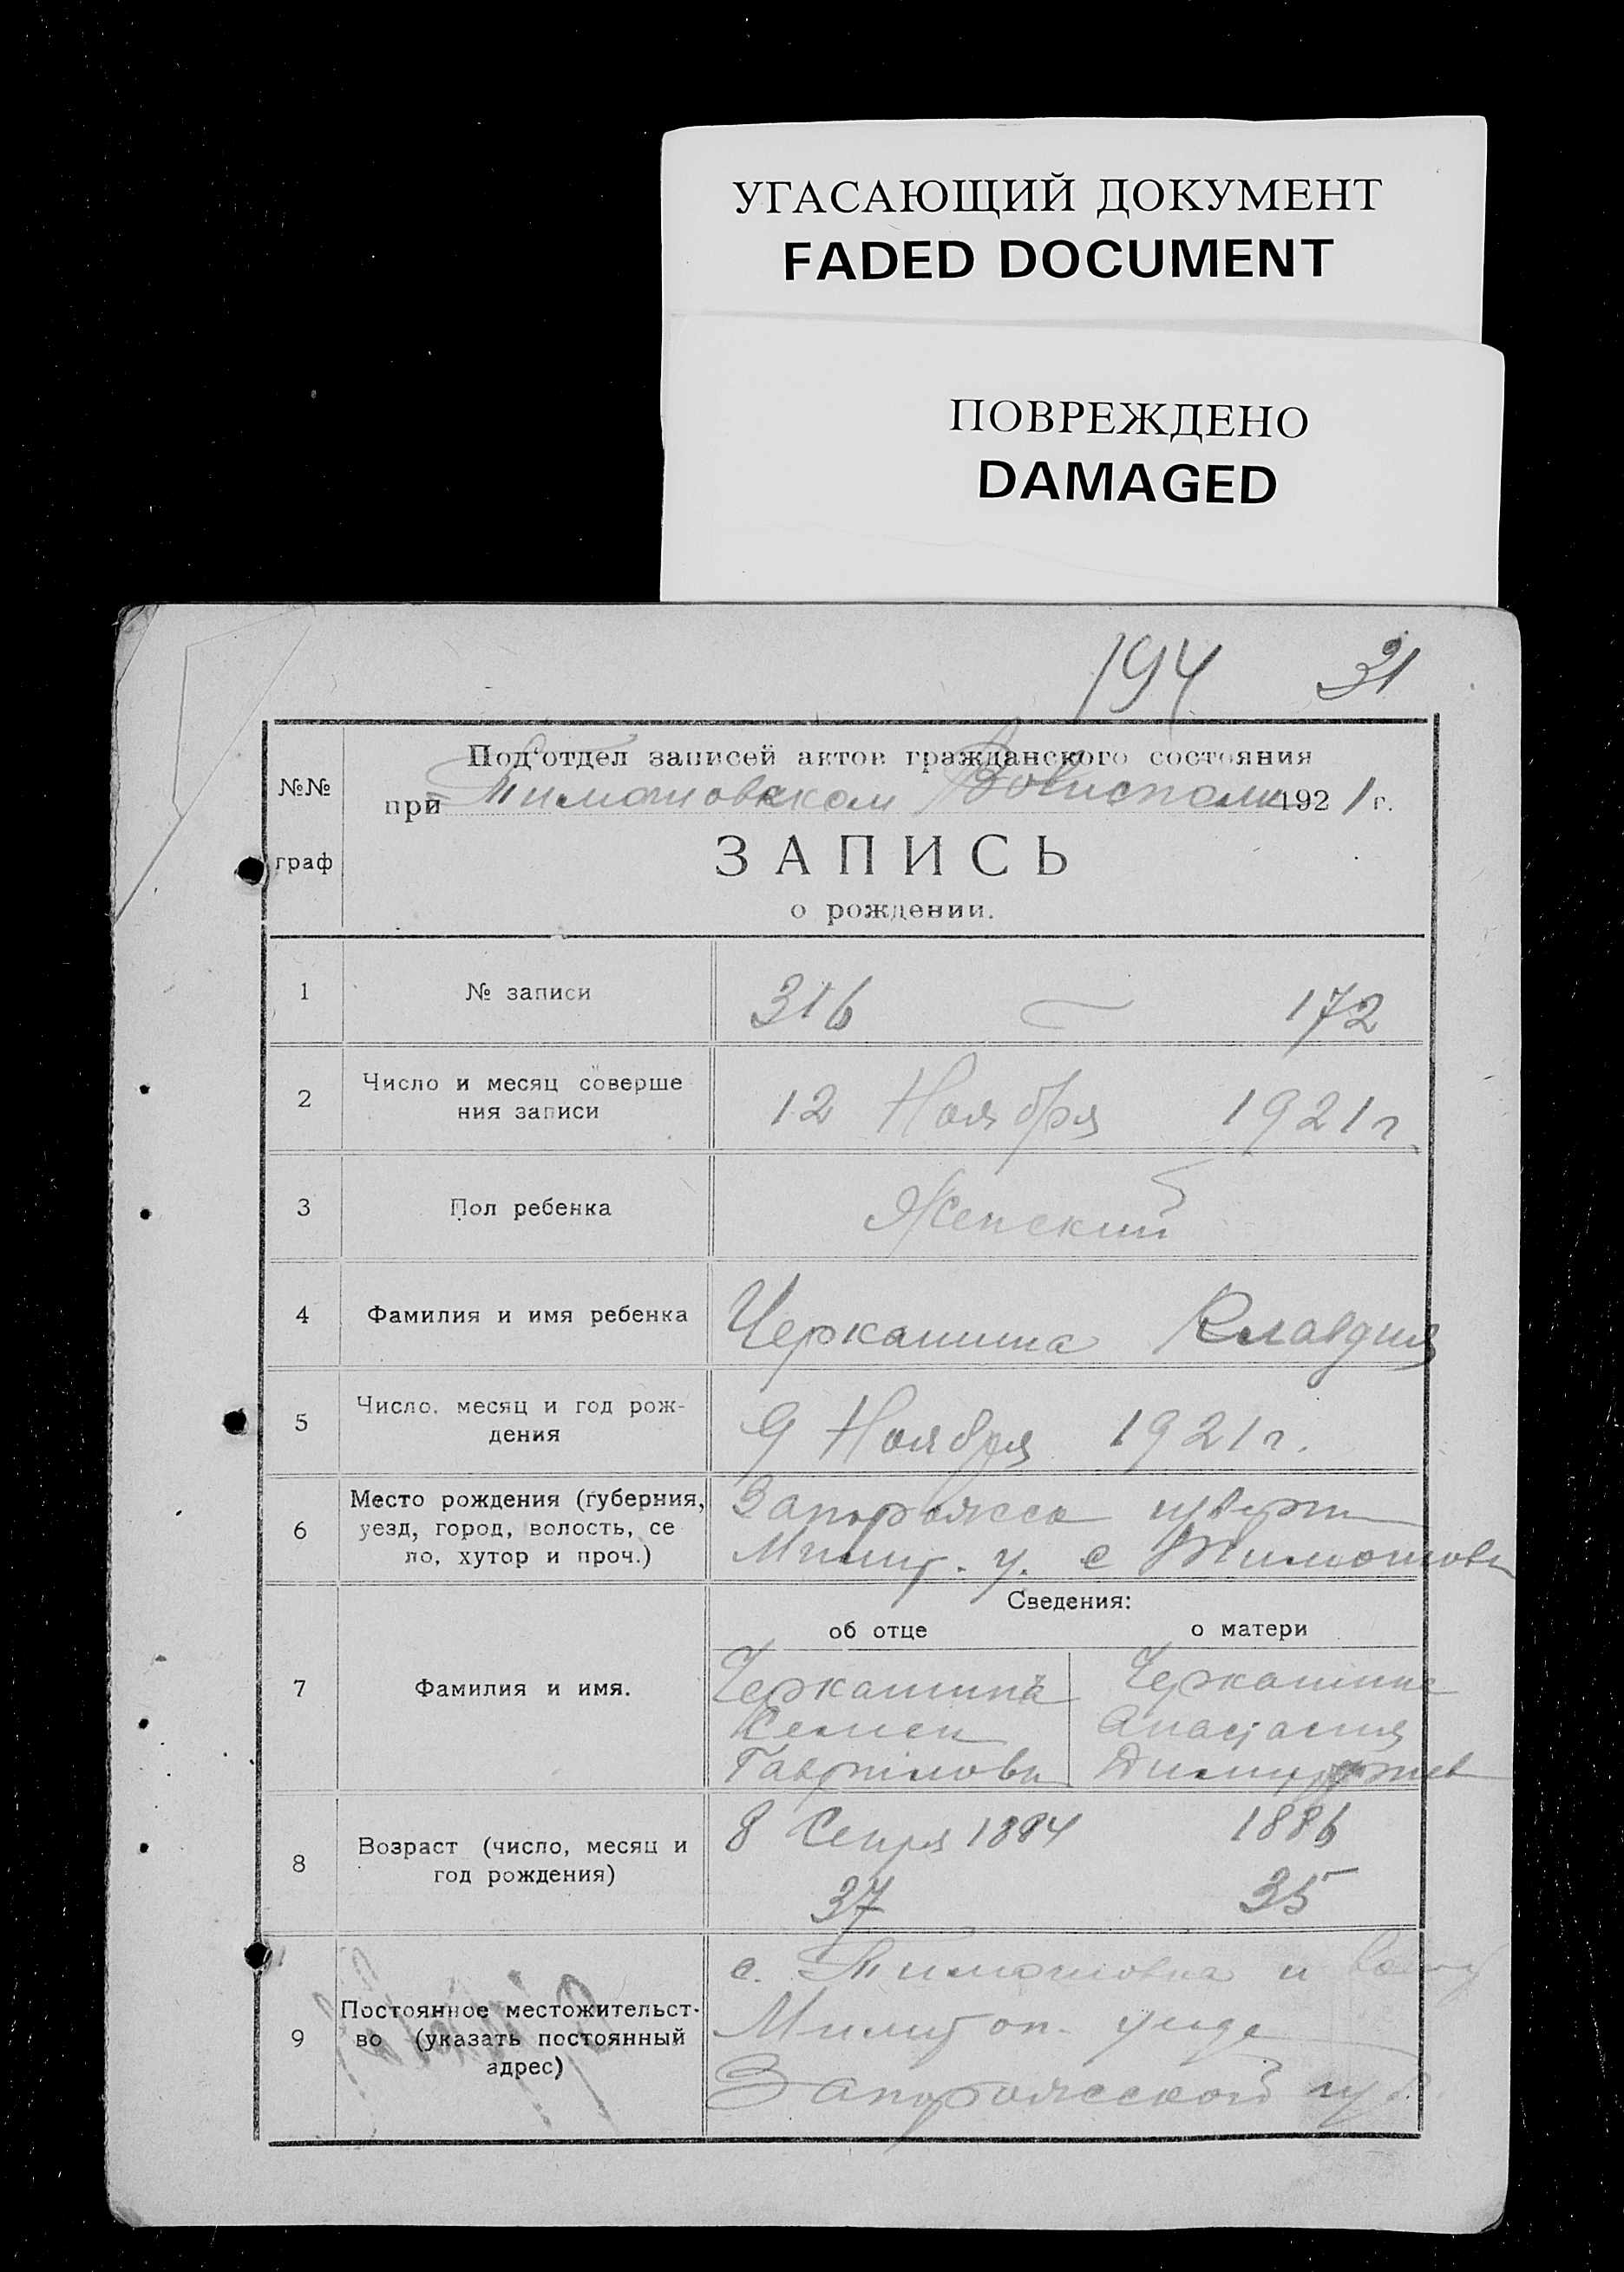 УГАСАЮЩИЙ ДОКУМЕНТ
FADED DOCUMENT
ПОВРЕЖДЕНО
DAMAGED
194 31
№№
граф
Под‘отдел записей актов гражданского состояния
при Тимошовском Волисполк 1921 г.
ЗАПИСЬ
о рождении.
1 № записи 316 — 172
2 Число и месяц соверше
ния записи
12 Ноября 1921 г
3 Пол ребенка Женский
4 Фамилия и имя ребенка Черкашина Клавдия
5 Число, месяц и год рож-
дения
9 Ноября 1921 г.
6 Место рождения (губерния,
уезд, город, волость, се
ло, хутор и проч.)
Запорожско губерн
Мелит. у. с Тимошовк
Сведения:
об отце о матери
7 Фамилия и имя.
Черкашина Черкашина
Семен Анастасия
Гаврилови Димитриев
8 Возраст (число, месяц и
год рождения)
8 Сентя 1884 1886
37 35
9 Постоянное местожительст-
во (указать постоянный
адрес)
с. Тимошовка и
Мелитоп. уезда
Запорожсской губ.